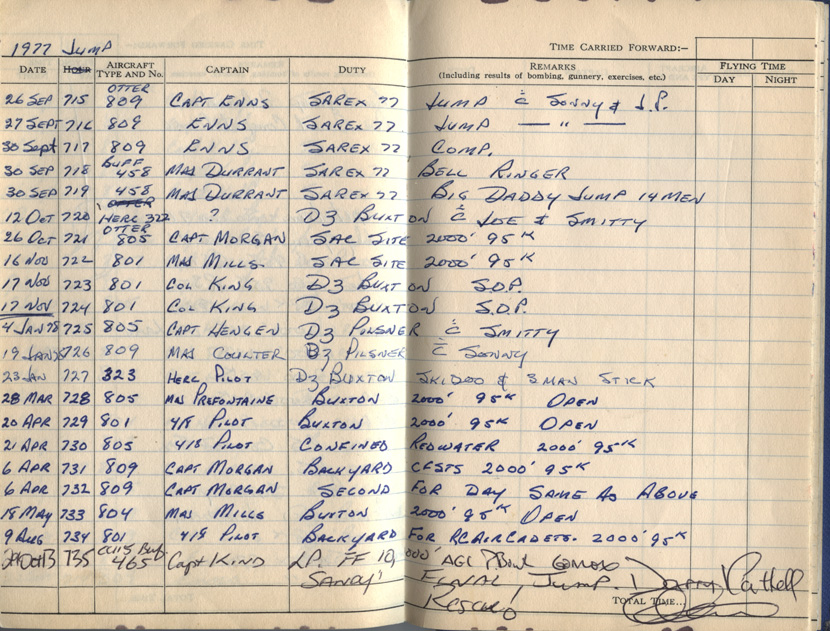 1977 JUMP
TIME CARRIED FORWARD:-
DATE HOUR AIRCRAFT TYPE AND No. CAPTAIN DUTY REMARKS (Including results of bombing, gunnery, exercises, etc.) FLYING TIME DAY NIGHT
26 SEP 715 OTTER 809 CAPT ENNS SAREX 77 JUMP c̄ SONNY & J.P.
27 SEPT 716 809 ENNS SAREX 77 JUMP — " —
30 Sept 717 809 ENNS SAREX 77 COMP.
30 SEP 718 BUFF 458 MAJ DURRANT SAREX 77 BELL RINGER
30 SEP 719 458 MAJ DURRANT SAREX 77 BIG DADDY JUMP 14 MEN
12 Oct 720 HERC 322 ? D3 BUXTON c̄ JOE & SMITTY
26 Oct 721 OTTER 805 CAPT MORGAN SAC SITE 2000' 95K
16 Nov 722 801 MAJ MILLS. SAC SITE 2000' 95K
17 Nov 723 801 COL KING D3 BUXTON S.O.P.
17 Nov 724 801 COL KING D3 BUXTON S.O.P.
4 JAN 78 725 805 CAPT HENGEN D3 PILSNER c̄ SMITTY
19 JAN 726 809 MAJ COULTER D3 PILSNER c̄ SONNY
23 JAN 727 323 HERC PILOT D3 BUXTON SKIDOO & 3 MAN STICK
28 MAR 728 805 MAJ PREFONTAINE BUXTON 2000' 95K OPEN
20 APR 729 801 418 PILOT BUXTON 2000' 95K OPEN
21 APR 730 805 418 PILOT CONFINED REDWATER 2000' 95K
6 APR 731 809 CAPT MORGAN BACKYARD CFSTS 2000' 95K
6 APR 732 809 CAPT MORGAN SECOND FOR DAY SAME AS ABOVE
18 MAY 733 804 MAJ MILLS BUXTON 2000' 95K OPEN
9 AUG 734 801 418 PILOT BACKYARD FOR RCAIRCADETS. 2000' 95K
735 465 Capt KIND LP. FF 10,000' AGL COMOX
SANDY' FINAL, JUMP.
Rescue
TOTAL TIME...